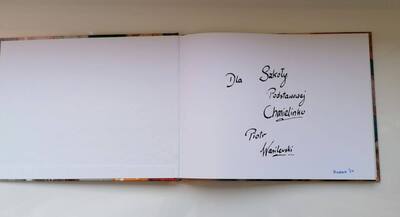 Dla Szkoły
Podstawowej
Chmielinko
Piotr
Wasilewski